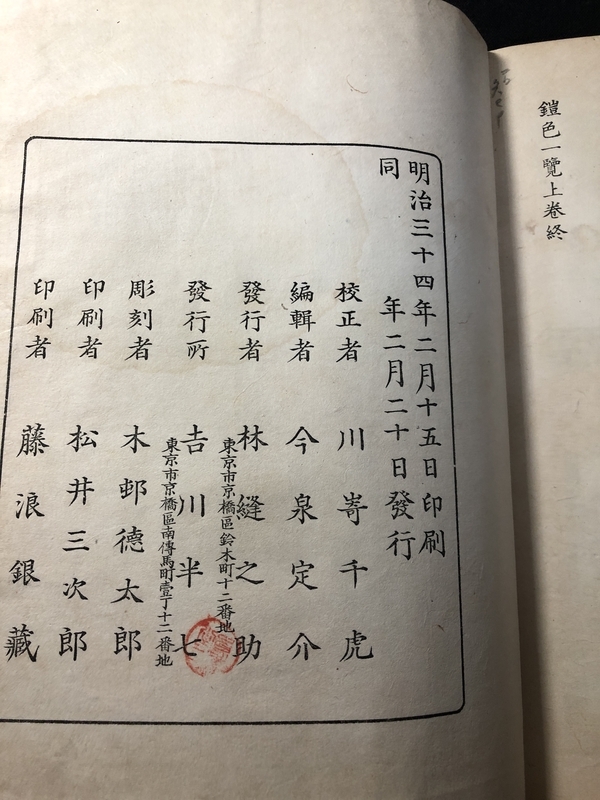 鎧色一覽上卷終
明治三十四年二月十五日印刷
同年二月二十日發行
校正者 川嵜千虎
編輯者 今泉定介
發行者 林縫之助
東京市京橋區鈴木町十二番地
發行所 吉川半七
東京市京橋區南傳馬町壹丁十二番地
彫刻者 木邨德太郎
印刷者 松井三次郎
印刷者 藤浪銀藏